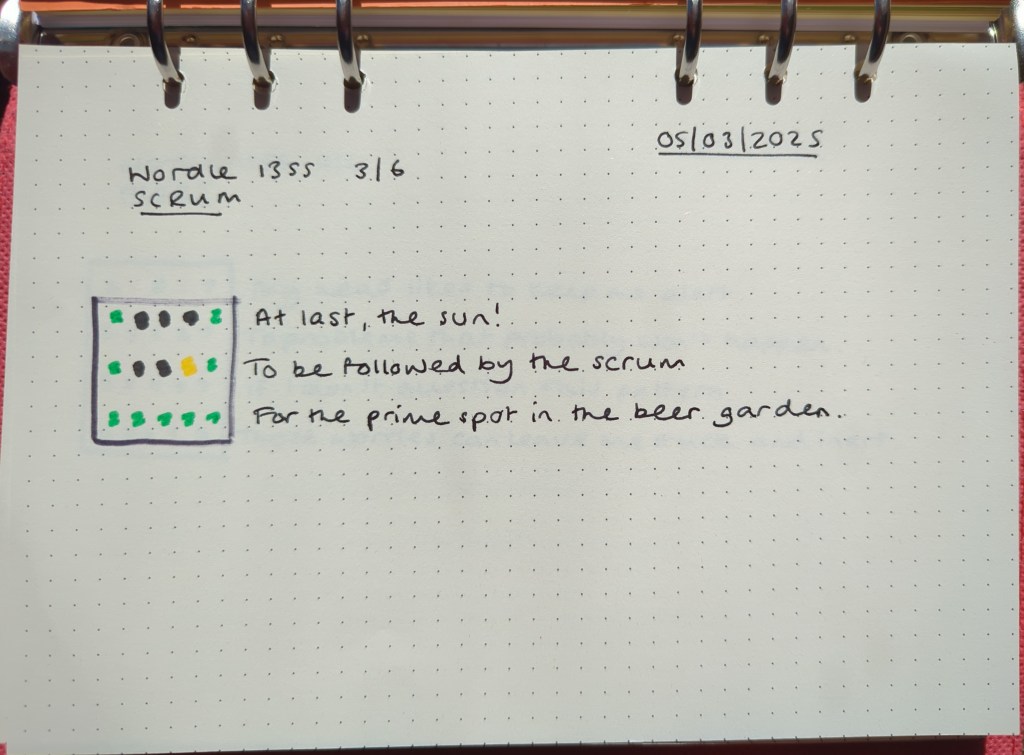 05/03/2025
Wordle 1355 3/6
SCRUM
At last, the sun!
To be followed by the scrum
For the prime spot in the beer garden.